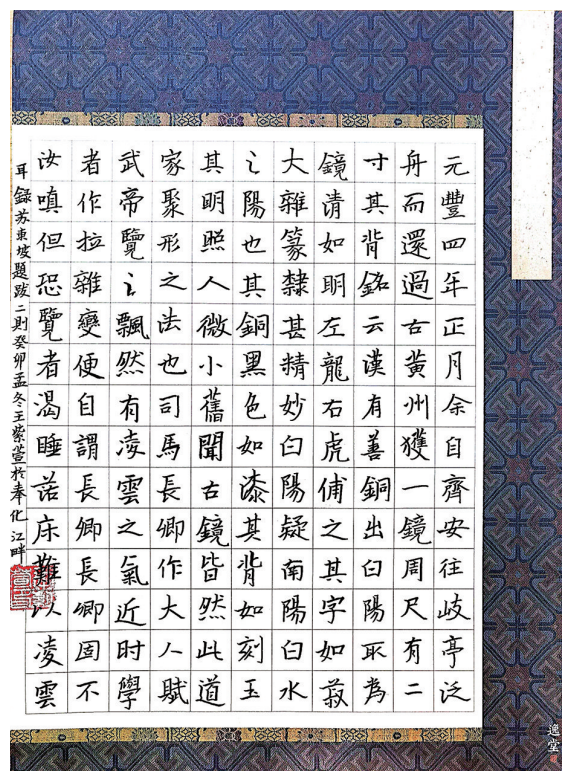 元豐四年正月余自齊安往岐亭泛
舟而還過古黃州獲一鏡周尺有二
寸其背銘云漢有善銅出白陽取為
鏡清如明左龍右虎俌之其字如菽
大雜篆隸甚精妙白陽疑南陽白水
之陽也其銅黑色如漆其背如刻玉
其明照人微小舊聞古鏡皆然此道
家聚形之法也司馬長卿作大人賦
武帝覽之飄然有凌雲之氣近时學
者作拉雜變便自謂長卿長卿固不
汝嗔但恐覽者渴睡落床難以凌雲
耳錄苏東坡題跋二則癸卯孟冬王紫萱於奉化江畔